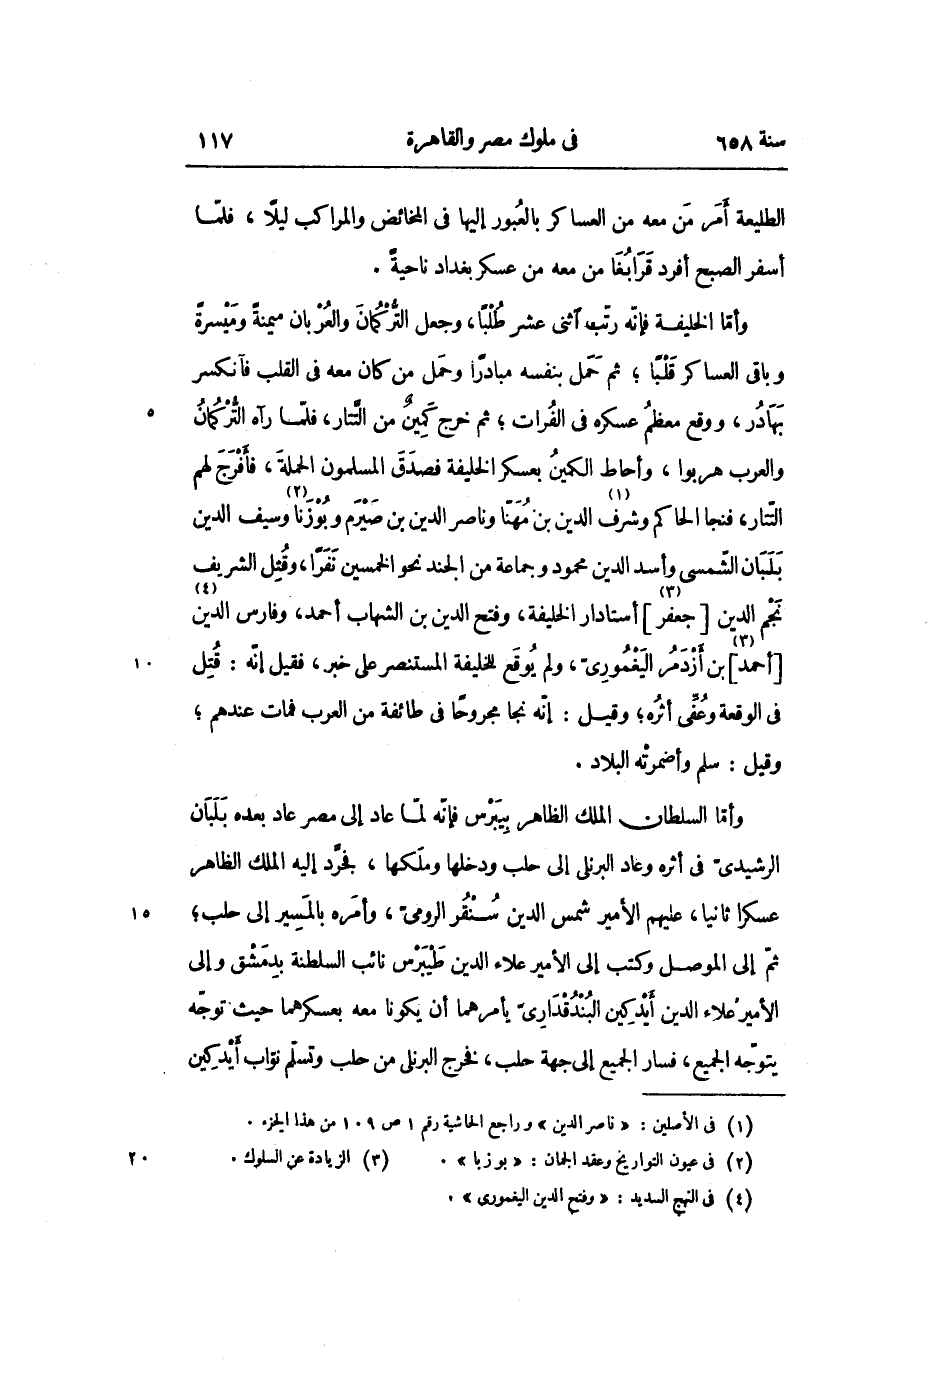 سنة ٦٥٨ فى ملوك مصر والقاهرة ١١٧
الطليعة أَمَر مَن معه من العساكر بالعُبور إليها فى المخائض والمراكب ليلًا ، فلمّا
أسفر الصبح أفرد قَرَابُغَا من معه من عسكر بغداد ناحيةً .
وأمّا الخليفة فإنّه رتّب آثنى عشر طُلْبًا، وجعل التُّرْكُمَانَ والعُرْبان ميمنةً ومَيْسرةً
وباقى العساكر قَلْبًا ؛ ثم حَمَل بنفسه مبادرًا وحمَل من كان معه فى القلب فآنكسر
بَهَادُر ، ووقع معظمُ عسكره فى الفُرات ؛ ثم خرج كَمِينٌ من التَّتار، فلمّا رآه التُّرْكُمَانُ ٥
والعرب هربوا ، وأحاط الكمينُ بعسكر الخليفة فصدَقَ المسلمون الحملةَ ، فأَفْرَجَ لهم
التّتار، فنجا الحاكم وشرف الدين (١) بن مُهَنّا وناصر الدين بن صَيْرَم وبُوْزَنا (٢) وسيف الدين
بَلَبَان الشّمسى وأسد الدين محمود وجماعة من الجند نحو الخمسين نَفَرًا، وقُتِل الشريف
نَجْم الدين [جعفر] (٣) أستادار الخليفة، وفتح الدين بن الشهاب أحمد، وفارس الدين (٤)
[أحمد] (٣) بن أَزْدَمُر اليَغْمُورِىّ ، ولم يُوقَع للخليفة المستنصر على خبر، فقيل إنّه : قُتِل ١٠
فى الوقعة وعُفِّى أثرُه؛ وقيل : إنّه نجا مجروحًا فى طائفة من العرب فمات عندهم ؛
وقيل : سلم وأضمرتْه البلاد .
وأمّا السلطان الملك الظاهر بِيبَرْس فإنّه لمّا عاد إلى مصر عاد بعده بَلَبَان
الرشيدىّ فى أثره وعاد البرنلى إلى حلب ودخلها وملَكها ، فجرَّد إليه الملك الظاهر
عسكرا ثانيا، عليهم الأمير شمس الدين سُنْقُر الرومىّ ، وأمَره بالمَسِير إلى حلب؛ ١٥
ثمّ إلى الموصل وكتب إلى الأمير علاء الدين طَيْبَرْس نائب السلطنة بِدِمَشْق وإلى
الأمير علاء الدين أَيْدكِين البُنْدُقْدَارِىّ يأمرهما أن يكونا معه بعسكرهما حيث توجّه
يتوجّه الجميع، فسار الجميع إلى جهة حلب، فخرج البرنلى من حلب وتسلّم نوّاب أَيْدكِين
(١) فى الأصلين : « ناصر الدين » وراجع الحاشية رقم ١ ص ١٠٩ من هذا الجزء .
(٢) فى عيون التواريخ وعقد الجمان : « بوزبا » . (٣) الزيادة عن السلوك . ٢٠
(٤) فى النهج السديد : « وفتح الدين اليغمورى » .